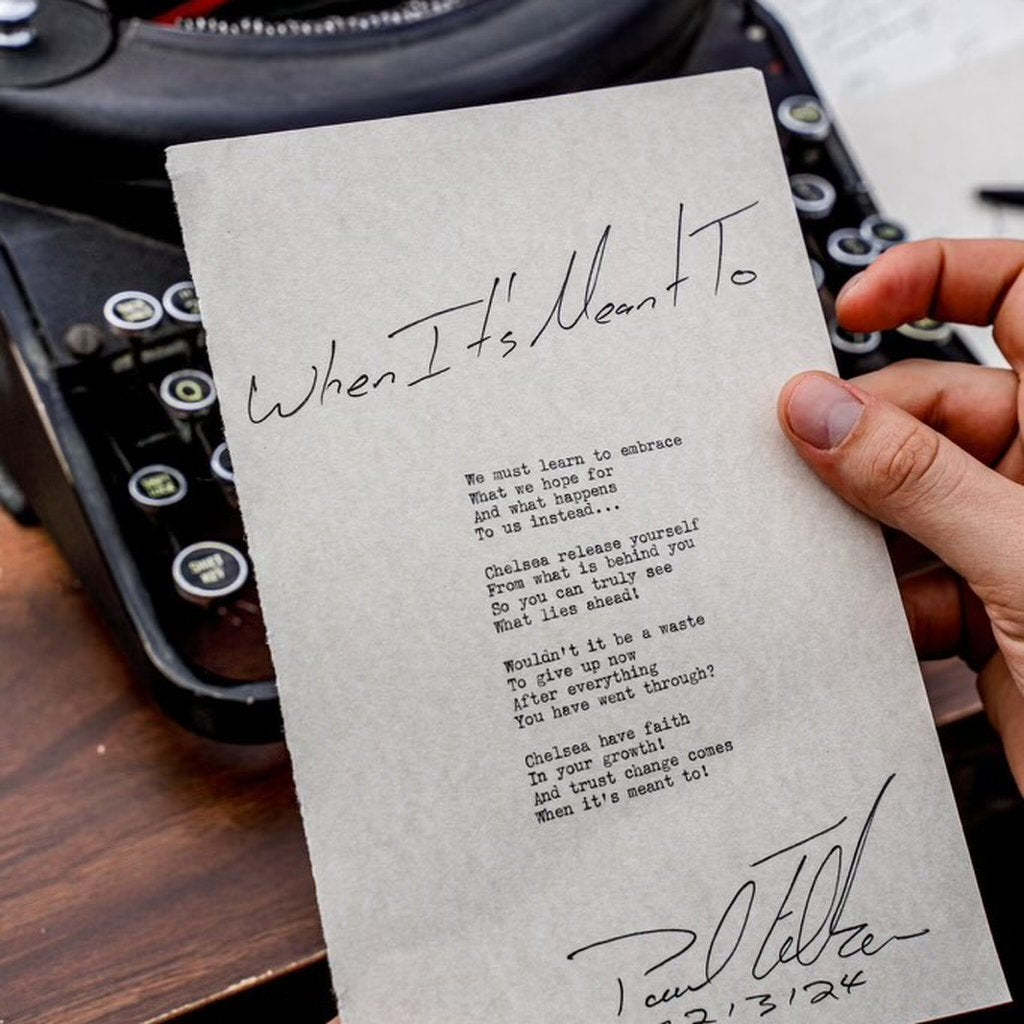 When It's Meant To
We must learn to embrace
What we hope for
And what happens
To us instead...
Chelsea release yourself
From what is behind you
So you can truly see
What lies ahead!
Wouldn't it be a waste
To give up now
After everything
You have went through?
Chelsea have faith
In your growth!
And trust change comes
When it's meant to!
Paul
SHIFT
KEY